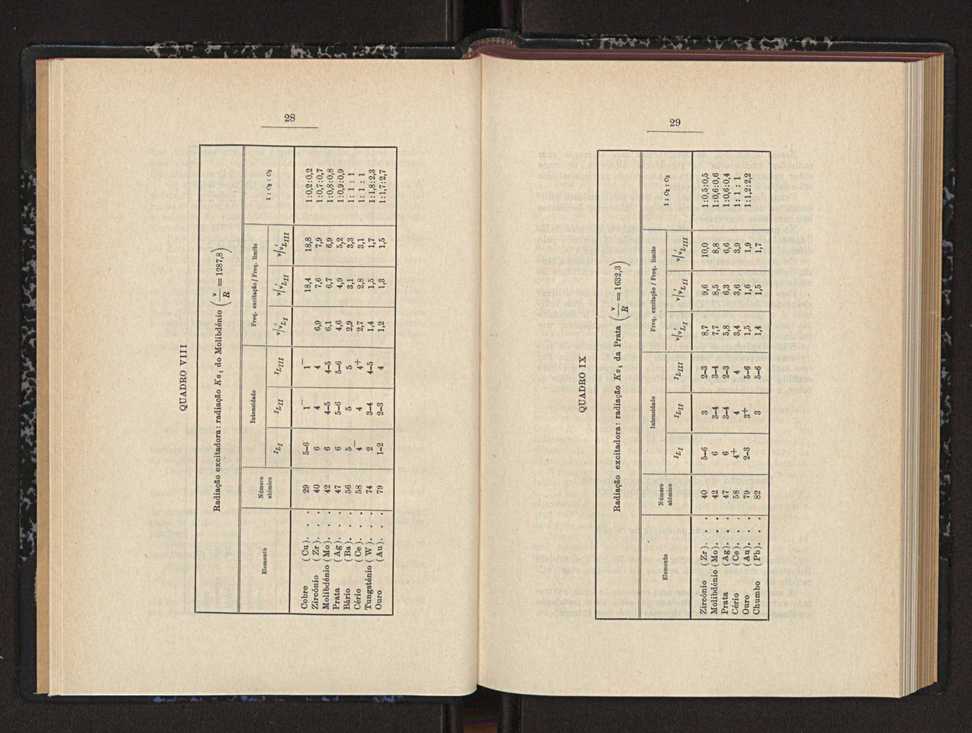 28
QUADRO VIII
Radiação excitadora: radiação Kα₁ do Molibdénio (ν/R = 1287,8)
Elemento | Número atómico | Intensidade | Freq. excitação / Freq. limite | 1 : c₂ : c₃
I_LI | I_LII | I_LIII | ν/ν'_LI | ν/ν'_LII | ν/ν'_LIII
Cobre (Cu). . . 29 5–6 1⁻ 1⁻ 18,4 18,8 1:0,2:0,2
Zircónio (Zr). . . 40 6 4 4 6,9 7,6 7,9 1:0,7:0,7
Molibdénio (Mo). . . 42 6 4–5 4–5 6,1 6,7 6,9 1:0,8:0,8
Prata (Ag). . . 47 6 5–6 5–6 4,6 4,9 5,2 1:0,9:0,9
Bário (Ba). . . 56 5 5 5 2,9 3,1 3,3 1: 1 : 1
Cério (Ce). . . 58 4⁻ 4 4⁺ 2,7 2,8 3,1 1: 1 : 1
Tungsténio (W). . . 74 2 3–4 4–5 1,4 1,5 1,7 1:1,8:2,3
Ouro (Au). . . 79 1–2 2–3 4 1,2 1,3 1,5 1:1,7:2,7
29
QUADRO IX
Radiação excitadora: radiação Kα₁ da Prata (ν/R = 1632,3)
Elemento | Número atómico | Intensidade | Freq. excitação / Freq. limite | 1 : c₂ : c₃
I_LI | I_LII | I_LIII | ν/ν'_LI | ν/ν'_LII | ν/ν'_LIII
Zircónio (Zr). . . 40 5–6 3 2–3 8,7 9,6 10,0 1:0,5:0,5
Molibdénio (Mo). . . 42 6 3–4 3–4 7,7 8,5 8,8 1:0,6:0,6
Prata (Ag). . . 47 6 3–4 2–3 5,8 6,3 6,6 1:0,6:0,4
Cério (Ce). . . 58 4⁺ 4 4 3,4 3,6 3,9 1: 1 : 1
Ouro (Au). . . 79 2–3 3⁺ 5–6 1,5 1,6 1,9 1:1,2:2,2
Chumbo (Pb). . . 82 3 5–6 1,4 1,5 1,7